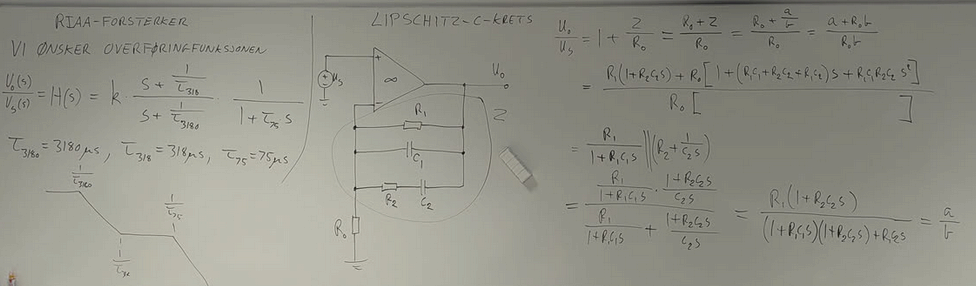 RIAA-FORSTERKER
VI ØNSKER OVERFØRINGFUNKSJONEN
U₀(s)/Uₛ(s) = H(s) = k · (s + 1/τ₃₁₈)/(s + 1/τ₃₁₈₀) · 1/(1 + τ₇₅ s)
τ₃₁₈₀ = 3180μs, τ₃₁₈ = 318μs, τ₇₅ = 75μs
1/τ₃₁₈₀
1/τ₇₅
LIPSCHITZ-C-KRETS
+
Uₛ
∞
U₀
−
R₁
Z
C₁
R₂
C₂
R₀
U₀/Uₛ = 1 + Z/R₀ = (R₀ + Z)/R₀ = (R₀ + a/b)/R₀ = (a + R₀b)/(R₀b)
= (R₁(1+R₂C₂s) + R₀[1 + (R₁C₁ + R₂C₂ + R₁C₂)s + R₁C₁R₂C₂ s²])/(R₀[ ])
= R₁/(1+R₁C₁s) || (R₂ + 1/(C₂s))
= (R₁/(1+R₁C₁s) · (1+R₂C₂s)/(C₂s))/(R₁/(1+R₁C₁s) + (1+R₂C₂s)/(C₂s)) = (R₁(1+R₂C₂s))/((1+R₁C₁s)(1+R₂C₂s)+R₁C₂s) = a/b